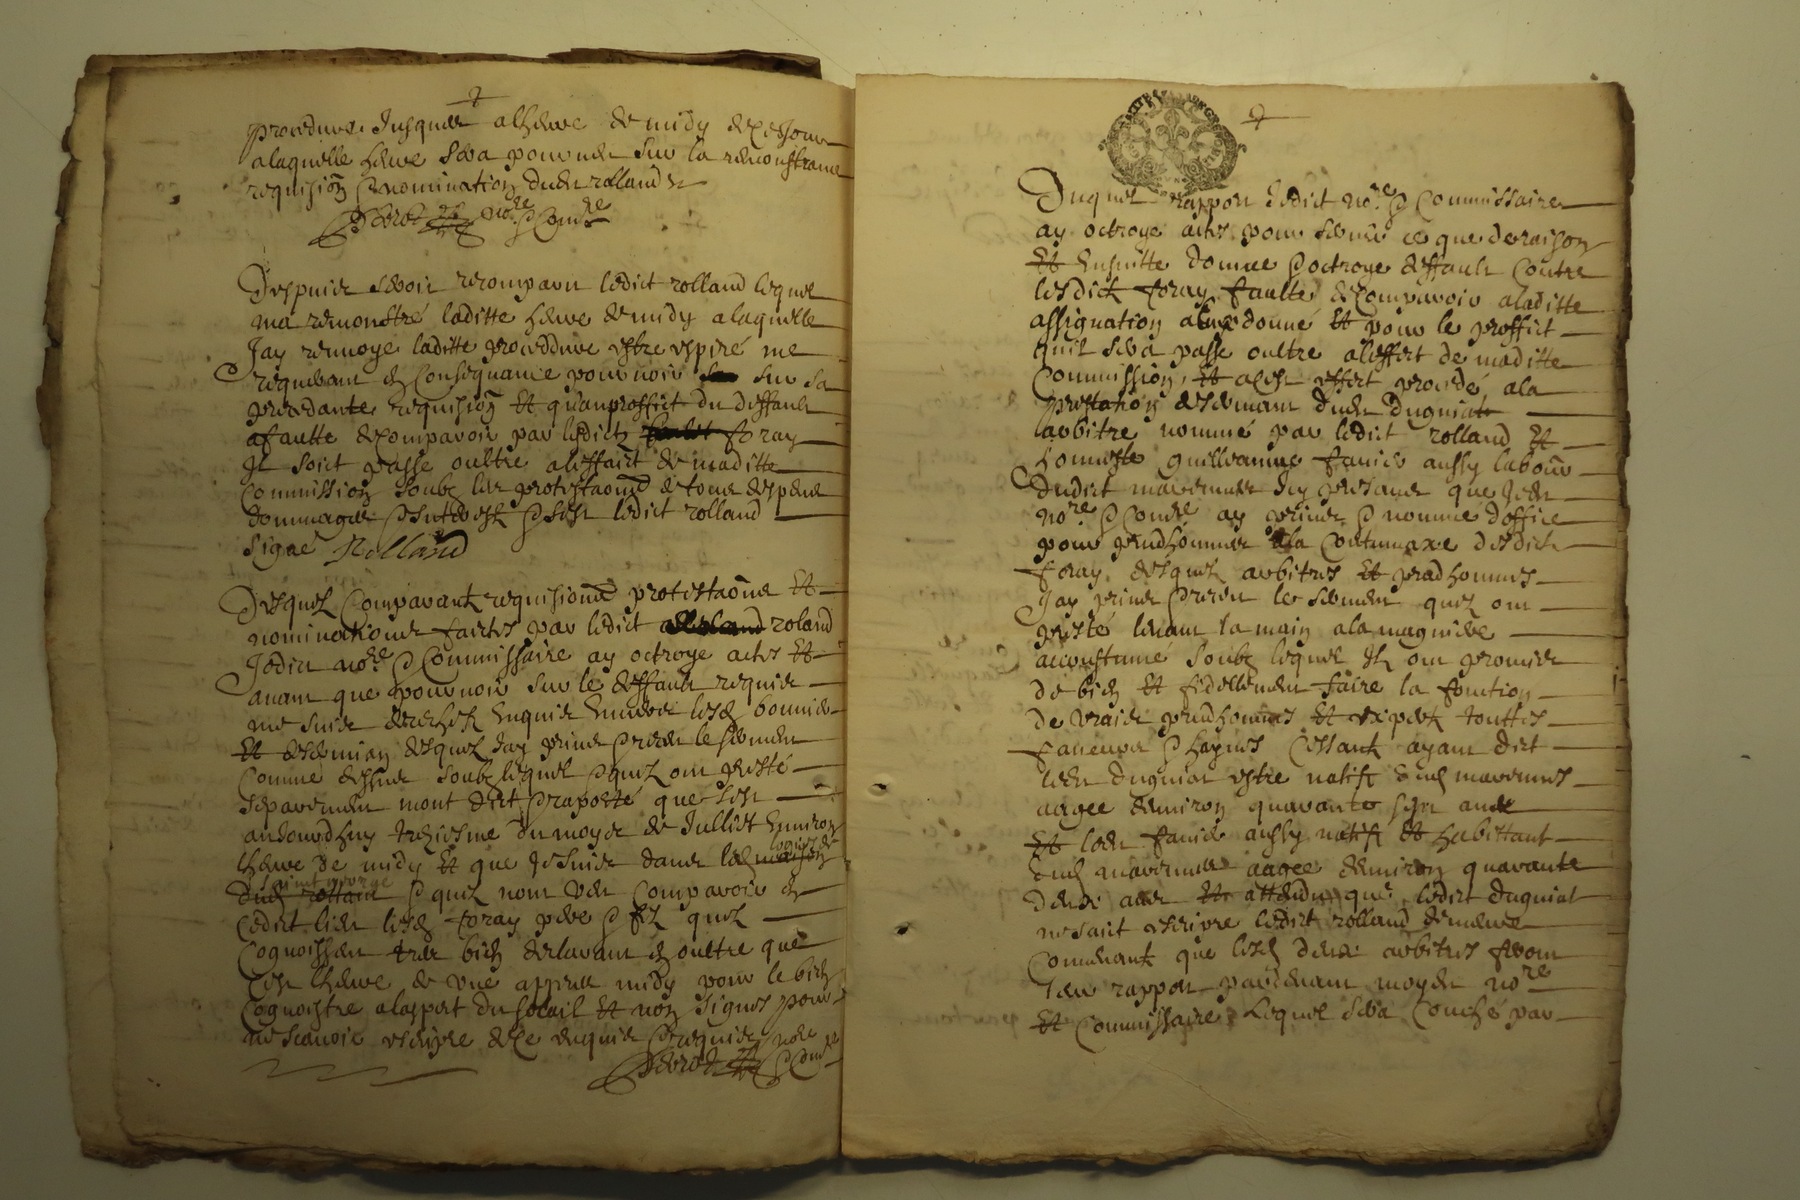 procedure Jusques alheure de midy de ce Jour
a laquelle heure sera pourveu sur la remonstrance
requision & nomination dudit rolland
no.re & Com.re
Despuis seroit recomparu ledict rolland lequel
ma remonstré laditte heure de midy a laquelle
Jay renvoye laditte procedure estre expiré me
requerant en consequance pourvoir sur sa
precedante requision Et quauproffict du deffault
afautte de comparoir par lesdictz foray
Il soict passe oultre aleffaict de maditte
Commission soubz les protestaons de tous despens
dommages & interestz & sest ledict rolland
signé Rolland
Desquelz Comparant requisions protestaons Et
nominations faictes par ledict roland
Jedict no.re & Commissaire ay octroye actes Et
avant que pourvoir sur le deffault requis
me suis derechefz Enquis Envers lesd bonnie
Et desquelz Jay prins & receu le serment
Comme dessus soubz lequel & quilz ont presté
separement mont dict & raporté que sest
aujourdhuy treziesme du moys de Julliet Environ
lheure de midy Et que Je suis dans led logis de
saint george & quilz nont veu comparoir en
cedict lieu lesd foray pere & filz quilz
Cognoissent tres bien declarant en oultre que
cest lheure de une appres midy pour le bien
Cognoistre a laspect du soleil Et non signes pour
ne scavoir escripre de ce enquis & requis
no.re & Com.re
Duquel rapport Jedict no.re & Commissaire
ay octroye actes pour servir ce que de raison
Et Ensuitte donne & octroye deffault Contre
lesdictz foray faulte de comparoir a laditte
assignation a eux donné Et pour le proffict
quil sera passe oultre a leffect de maditte
Commission, Et a cest effect procedé a la
prestation de serment dudit Duguiat
larbitre nommé par ledict rolland Et
honneste guilleaume fanie aussy labour
dudict mavernie Icy presant que Jedit
no.re & Com.re ay prins & nommé doffice
pour prudhomme a la Contumaxe desdictz
foray, desquelz arbitres Et prudhommes
Jay prins & receu le serment quilz ont
presté levant la main a la magniere
accoustumé soubz lequel Ilz ont promis
de bien Et fidellement faire la fonction
de vrais prudhommes Et expertz touttes
faveurs & haynes cessant ayant dict
ledit duguiat estre natifz dud
aagee denviron quarante sept ans
Et ledit fanie aussy natifz Et habittant
dud aagee denviron quarante
deux ans Et attendu que ledict duguiat
ne sait escripre ledict rolland demeure
Consentant que lesd deux arbitres fveront
leur rapport pardevant moydit no.re
Et Commissaire lequel sera Couché par